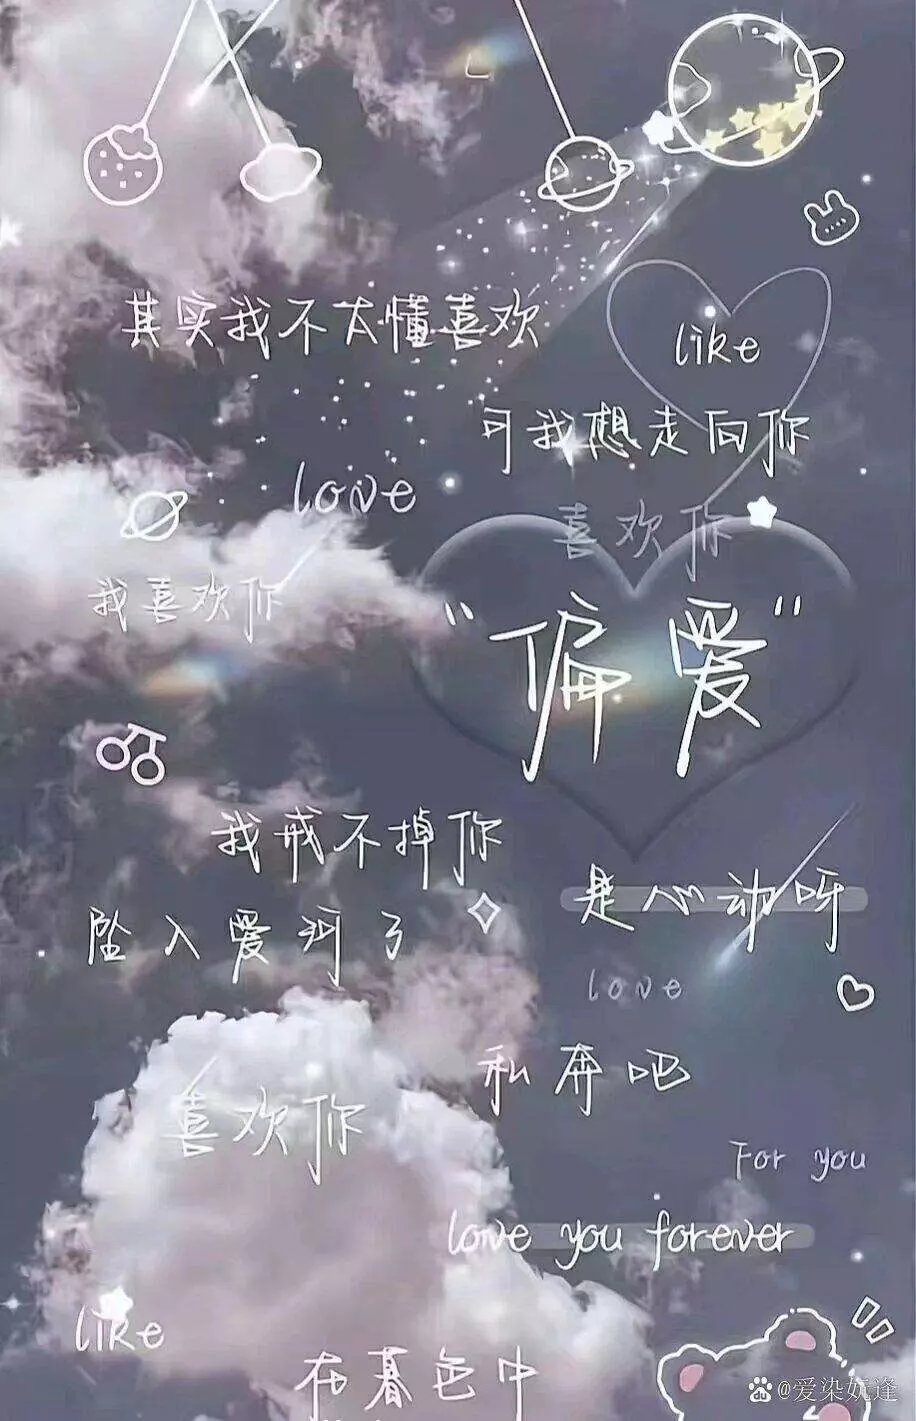 其实我不太懂喜欢
like
可我想走向你
love
喜欢你
我喜欢你
"偏爱"
我戒不掉你
是心动呀
坠入爱河了
love
私奔吧
喜欢你
For you
love you forever
like
在暮色中
@爱染妧逢